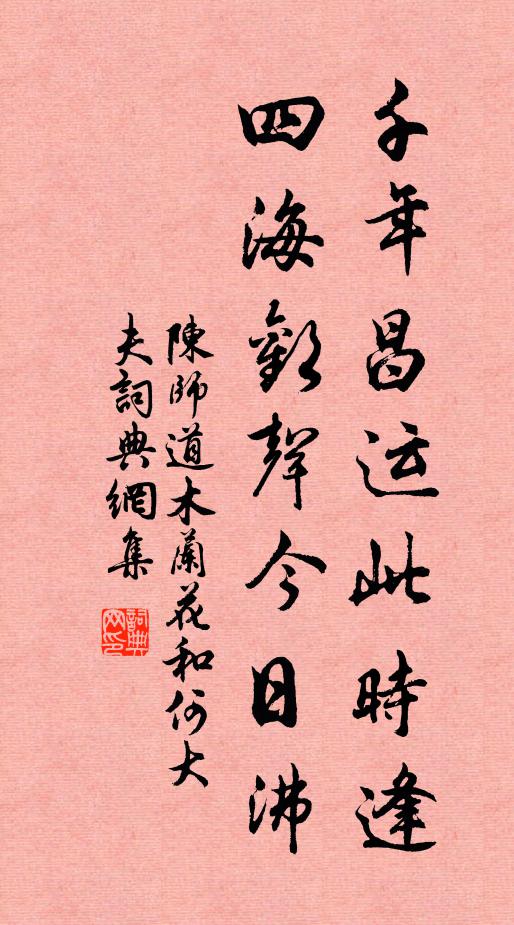 千年昌运此時逢
四海歡聲今日沸
陳師道木蘭花和何大
夫詞典網集
詞典
网印